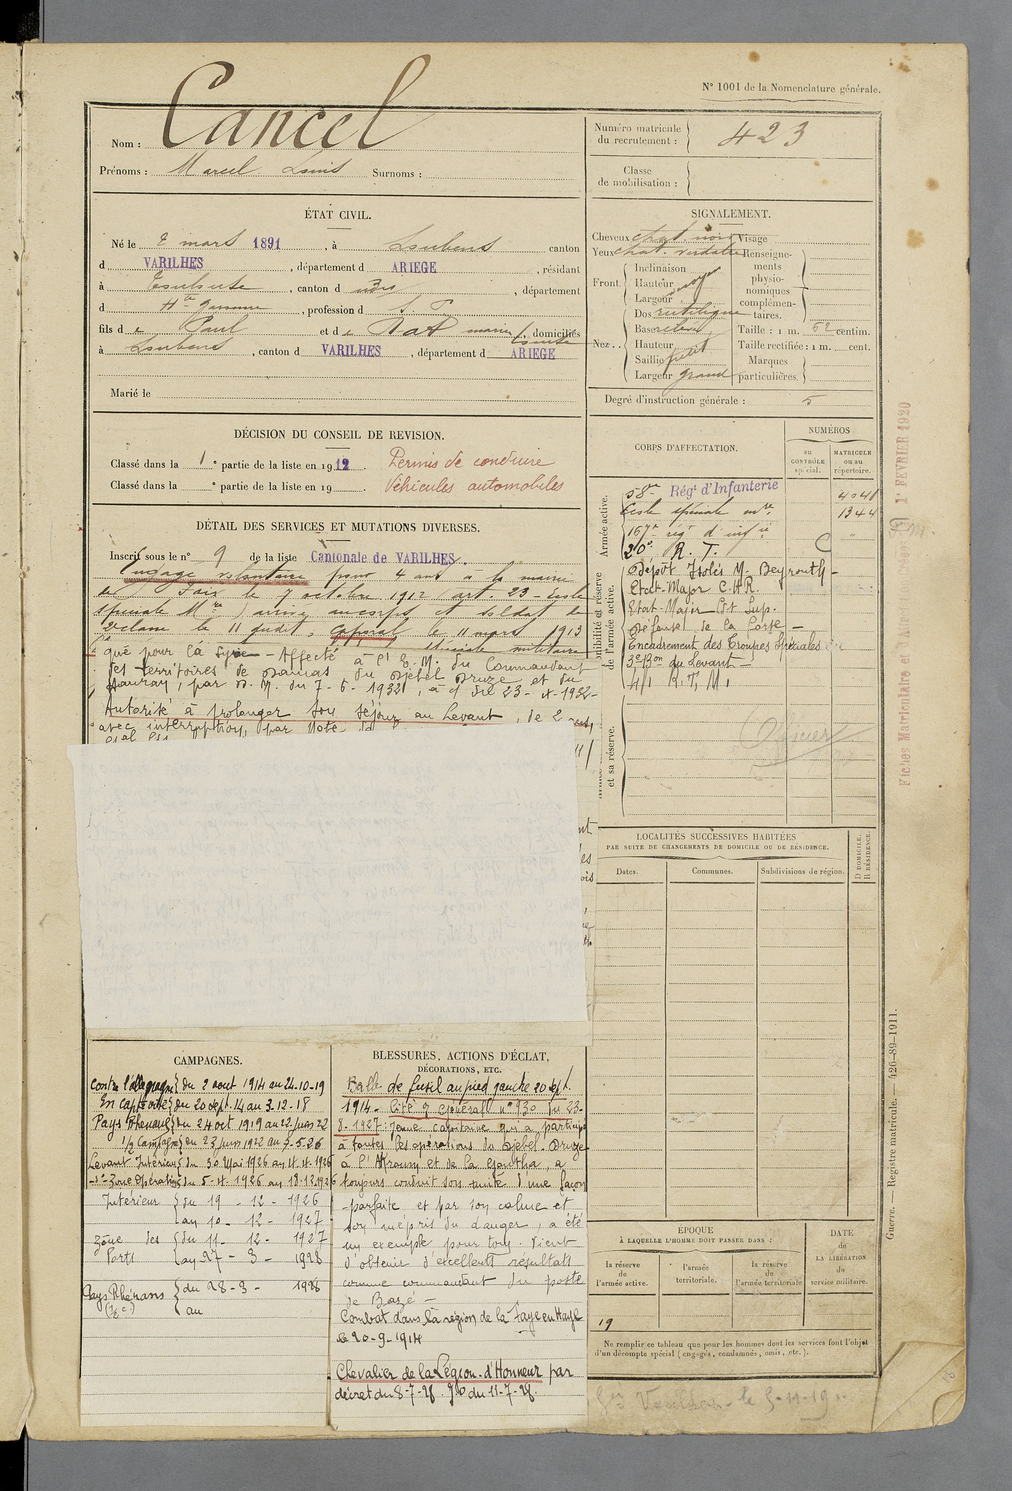 N° 1001 de la Nomenclature générale.
Nom : Cancel
Prénoms : Marcel Louis Surnoms :
Numéro matricule du recrutement : 423
Classe de mobilisation :
ÉTAT CIVIL.
Né le 2 mars 1891, à Loubens canton
d VARILHES, département d ARIEGE, résidant
à Toulouse, canton d dudit, département
d Hte Garonne, profession d S. P.
fils de Paul et de Nat Marie Louise, domiciliés
à Loubens, canton d VARILHES, département d ARIEGE
Marié le
SIGNALEMENT.
Cheveux chat. noir Visage
Yeux chat. verdatre Renseignements physionomiques complémentaires.
Front. Inclinaison
Hauteur moyen
Largeur
Nez.. Dos rectiligne
Base relevé
Hauteur
Saillie petit
Largeur grand
Taille : 1 m. 62 centim.
Taille rectifiée : 1 m. cent.
Marques particulières.
Degré d'instruction générale : 5
DÉCISION DU CONSEIL DE REVISION.
Classé dans la 1e partie de la liste en 1912. Permis de conduire
Classé dans la e partie de la liste en 19 . Véhicules automobiles
DÉTAIL DES SERVICES ET MUTATIONS DIVERSES.
Inscrit sous le n° 9 de la liste Cantonale de VARILHES.
Engagé volontaire pour 4 ans à la mairie
de Foix le 7 octobre 1912 (art. 23 - liste
spéciale Mre) arrivé au corps et soldat de
2e classe le 11 dudit, caporal le 11 mars 1913
que pour la Syrie - Affecté à l'E. M. du Commandant
des territoires de Damas du Djebel Druze et du
Hauran, par D. M. du 7-6-1932, à d du 23-4-1932-
Autorisé à prolonger son séjour au Levant, de 2 ans,
avec interruption, par Note de
CORPS D'AFFECTATION.
NUMÉROS
au CONTRÔLE spécial.
MATRICULE ou au répertoire.
Armée active.
58e Régt d'Infanterie 4041
Liste spéciale mre. 1344
167e régt d'infie "
20e R. T. C
Disponibilité et réserve de l'armée active.
Dépôt Isolés M. Beyrouth -
Etat-Major C.H.R.
Etat-Major Gt Sup.
Défense de la Corse -
Encadrement des Troupes Spéciales
3e Bon du Levant -
41 R.T.M.
et sa réserve.
Officier
Fiches Matriculaire et d'Alerte 1r FEVRIER 1920
LOCALITÉS SUCCESSIVES HABITÉES
PAR SUITE DE CHANGEMENTS DE DOMICILE OU DE RÉSIDENCE.
Dates. Communes. Subdivisions de région. D DOMICILE. R RÉSIDENCE.
CAMPAGNES.
Contre l'Allemagne du 2 aout 1914 au 24-10-19
En captivité du 20 sept. 14 au 3-12-18
Pays Rhénans du 24 oct 1919 au 22 juin 22
1/2 Campagne du 23 juin 1922 au 7-5-26
Levant Intérieur du 30 Mai 1926 au 4-4-1926
-d°- Zone Opérations du 5-4-1926 au 18-12-1926
Intérieur du 19-12-1926
au 10-12-1927
Zone des du 11-12-1927
Ports au 27-3-1928
Pays Rhénans du 28-3-1928
au
BLESSURES, ACTIONS D'ÉCLAT,
DÉCORATIONS, ETC.
Balle de fusil au pied gauche 20 sept.
1914 - Cité O général n° 930 du 23-
8-1927 : jeune capitaine qui a participé
à toutes les opérations du Djebel-Druze
à l'Akroum et de la Goutha, a
toujours conduit son unité d'une façon
parfaite et par son calme et
son mépris du danger, a été
un exemple pour tous. Vient
d'obtenir d'excellents résultats
comme commandant du poste
de Bozé -
Combat dans la région de la Haye en Haye
le 20-9-1914
Chevalier de la Légion-d'Honneur par
décret du 8-7-28. JO du 11-7-28.
ÉPOQUE
À LAQUELLE L'HOMME DOIT PASSER DANS :
la réserve de l'armée active.
l'armée territoriale.
la réserve de l'armée territoriale
DATE de la LIBÉRATION du service militaire.
19
Ne remplir ce tableau que pour les hommes dont les services font l'objet
d'un décompte spécial (engagés, condamnés, omis, etc.).
Guerre. — Registre matricule. — 426-89-1911.